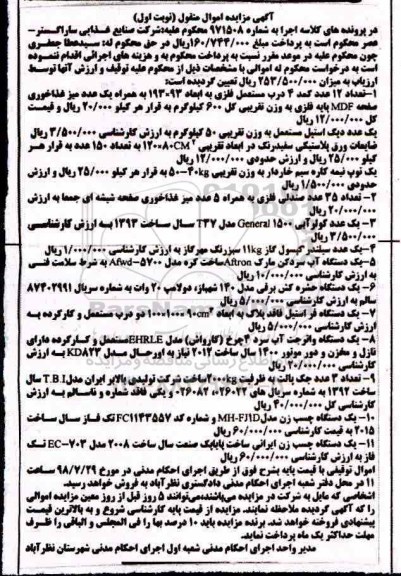 آگهی مزایده اموال منقول (نوبت اول)
در پرونده های کلاسه اجرا به شماره ۹۷۱۵۰۸ محکوم علیه:شرکت صنایع غذایی ساراگستر-
عصر محکوم است به پرداخت مبلغ ۱۶۰/۷۴۴/۰۰۰ریال در حق محکوم له: سیدعطا جعفری
چون محکوم علیه در موعد مقرر نسبت به پرداخت محکوم به و هزینه های اجرائی اقدام ننموده
است به درخواست محکوم له اموالی با مشخصات ذیل از محکوم علیه توقیف و ارزش آنها توسط
ارزیاب به میزان ۲۵۳/۵۰۰/۰۰۰ ریال تعیین گردیده است:
۱-تعداد ۱۲ عدد کمد ۴ درب مستعمل فلزی به ابعاد ۹۳*۱۹۳ به همراه یک عدد میز غذاخوری
صفحه MDF پایه فلزی به وزن تقریبی کل ۶۰۰ کیلوگرم به قرار هر کیلو ۲۰/۰۰۰ ریال و قیمت
کل ۱۲/۰۰۰/۰۰۰ ریال
یک عدد دیگ استیل مستعمل به وزن تقریبی ۵۰ کیلوگرم به ارزش کارشناسی ۳/۵۰۰/۰۰۰ ریال
ضایعات ورق پلاستیکی سفیدرنگ در ابعاد تقریبی ۱۲۰*۸۰CM² به تعداد ۱۵۰ عدد به قرار هر
کیلو ۲۵/۰۰۰ ریال و ارزش حدودی ۱۲/۰۰۰/۰۰۰ ریال
یک توپ نیمه کاره سیم خاردار به وزن تقریبی ۴۰kg-۵۰ به قرار هر کیلو ۲۵/۰۰۰ ریال و ارزش
حدودی ۱/۵۰۰/۰۰۰ ریال
۲- تعداد ۳۵ عدد صندلی فلزی به همراه ۵ عدد میز غذاخوری صفحه شیشه ای جمعا به ارزش
۲۰/۰۰۰/۰۰۰ ریال
۳- یک عدد کولر آبی General ۱۵۰۰ مدل T۳۷ سال ساخت ۱۳۹۳ به ارزش کارشناسی
۳/۵۰۰/۰۰۰ ریال
۴-یک عدد سیلندر کپسول گاز ۱۱kg سبزرنگ مهرگاز به ارزش کارشناسی ۱/۰۰۰/۰۰۰ ریال
۵-یک دستگاه آب سردکن مارک Aftronساخت کره مدل Afwd-۵۷۰۰ به شرط سلامت فنی
به ارزش کارشناسی ۱۰/۰۰۰/۰۰۰ ریال
۶- یک دستگاه حشره کش برقی مدل ۱۳۰ شهباز، دولامپ ۲۰ وات به شماره سریال ۸۷۴۰۲۹۹۱
سالم به ارزش کارشناسی ۵/۰۰۰/۰۰۰ ریال
۷- یک دستگاه فر استیل فاقد پلاک به ابعاد ۹۰cm²*۱۰۰*۱۰۰ دو درب مستعمل و کارکرده به
ارزش کارشناسی ۵/۰۰۰/۰۰۰ ریال
۸- یک دستگاه واترجت آب سرد ۴چرخ (کارواش) مدل EHRLEمستعمل و کارکرده دارای
نازل و مخزن و دور موتور ۱۴۰۰ سال ساخت ۲۰۱۲ نیاز به اورحال مدل KDA۲۳ به ارزش
کارشناسی ۲۰/۰۰۰/۰۰۰ ریال
۹- تعداد ۳ عدد جک پالت به ظرفیت ۲۰۰۰kgساخت شرکت تولیدی بالابر ایران مدلT.B.I سال
ساخت ۱۳۹۲ به شماره سریال های ۲۶۰۲۲ و ۲۶۰۸۲ و یکی فاقد شماره و ناسالم به ارزش
کارشناسی کل ۴۰/۰۰۰/۰۰۰ ریال
۱۰- یک دستگاه چسب زن مدلMH-FJ۱D و شماره کد FC۱۱۴۳۵۵۷ تک فاز سال ساخت
۲۰۱۵ به قیمت کارشناسی ۶۰/۰۰۰/۰۰۰ ریال
۱۱- یک دستگاه چسب زن ایرانی ساخت پایاپک صنعت سال ساخت ۲۰۰۸ مدل EC-۷۰۳ تک
فاز به ارزش کارشناسی ۶۰/۰۰۰/۰۰۰ ریال
اموال توقیفی با قیمت پایه بشرح فوق از طریق اجرای احکام مدنی در مورخ ۹۸/۷/۲۹ ساعت
۱۱ در محل دفتر شعبه اجرای احکام مدنی دادگستری نظرآباد به فروش خواهد رسید.
اشخاصی که مایل به شرکت در مزایده می‌باشند،می‌توانند ۵ روز قبل از روز معین مزایده اموالی
را که آگهی گردیده ملاحظه نمایند. مزایده از قیمت پایه کارشناسی شروع و به بالاترین قیمت
پیشنهادی فروخته خواهد شد. برنده مزایده باید ۱۰ درصد بها را فی المجلس و الباقی را ظرف
مهلت حداکثر یک ماه پرداخت نماید.
مدیر واحد اجرای احکام مدنی شعبه اول اجرای احکام مدنی شهرستان نظرآباد